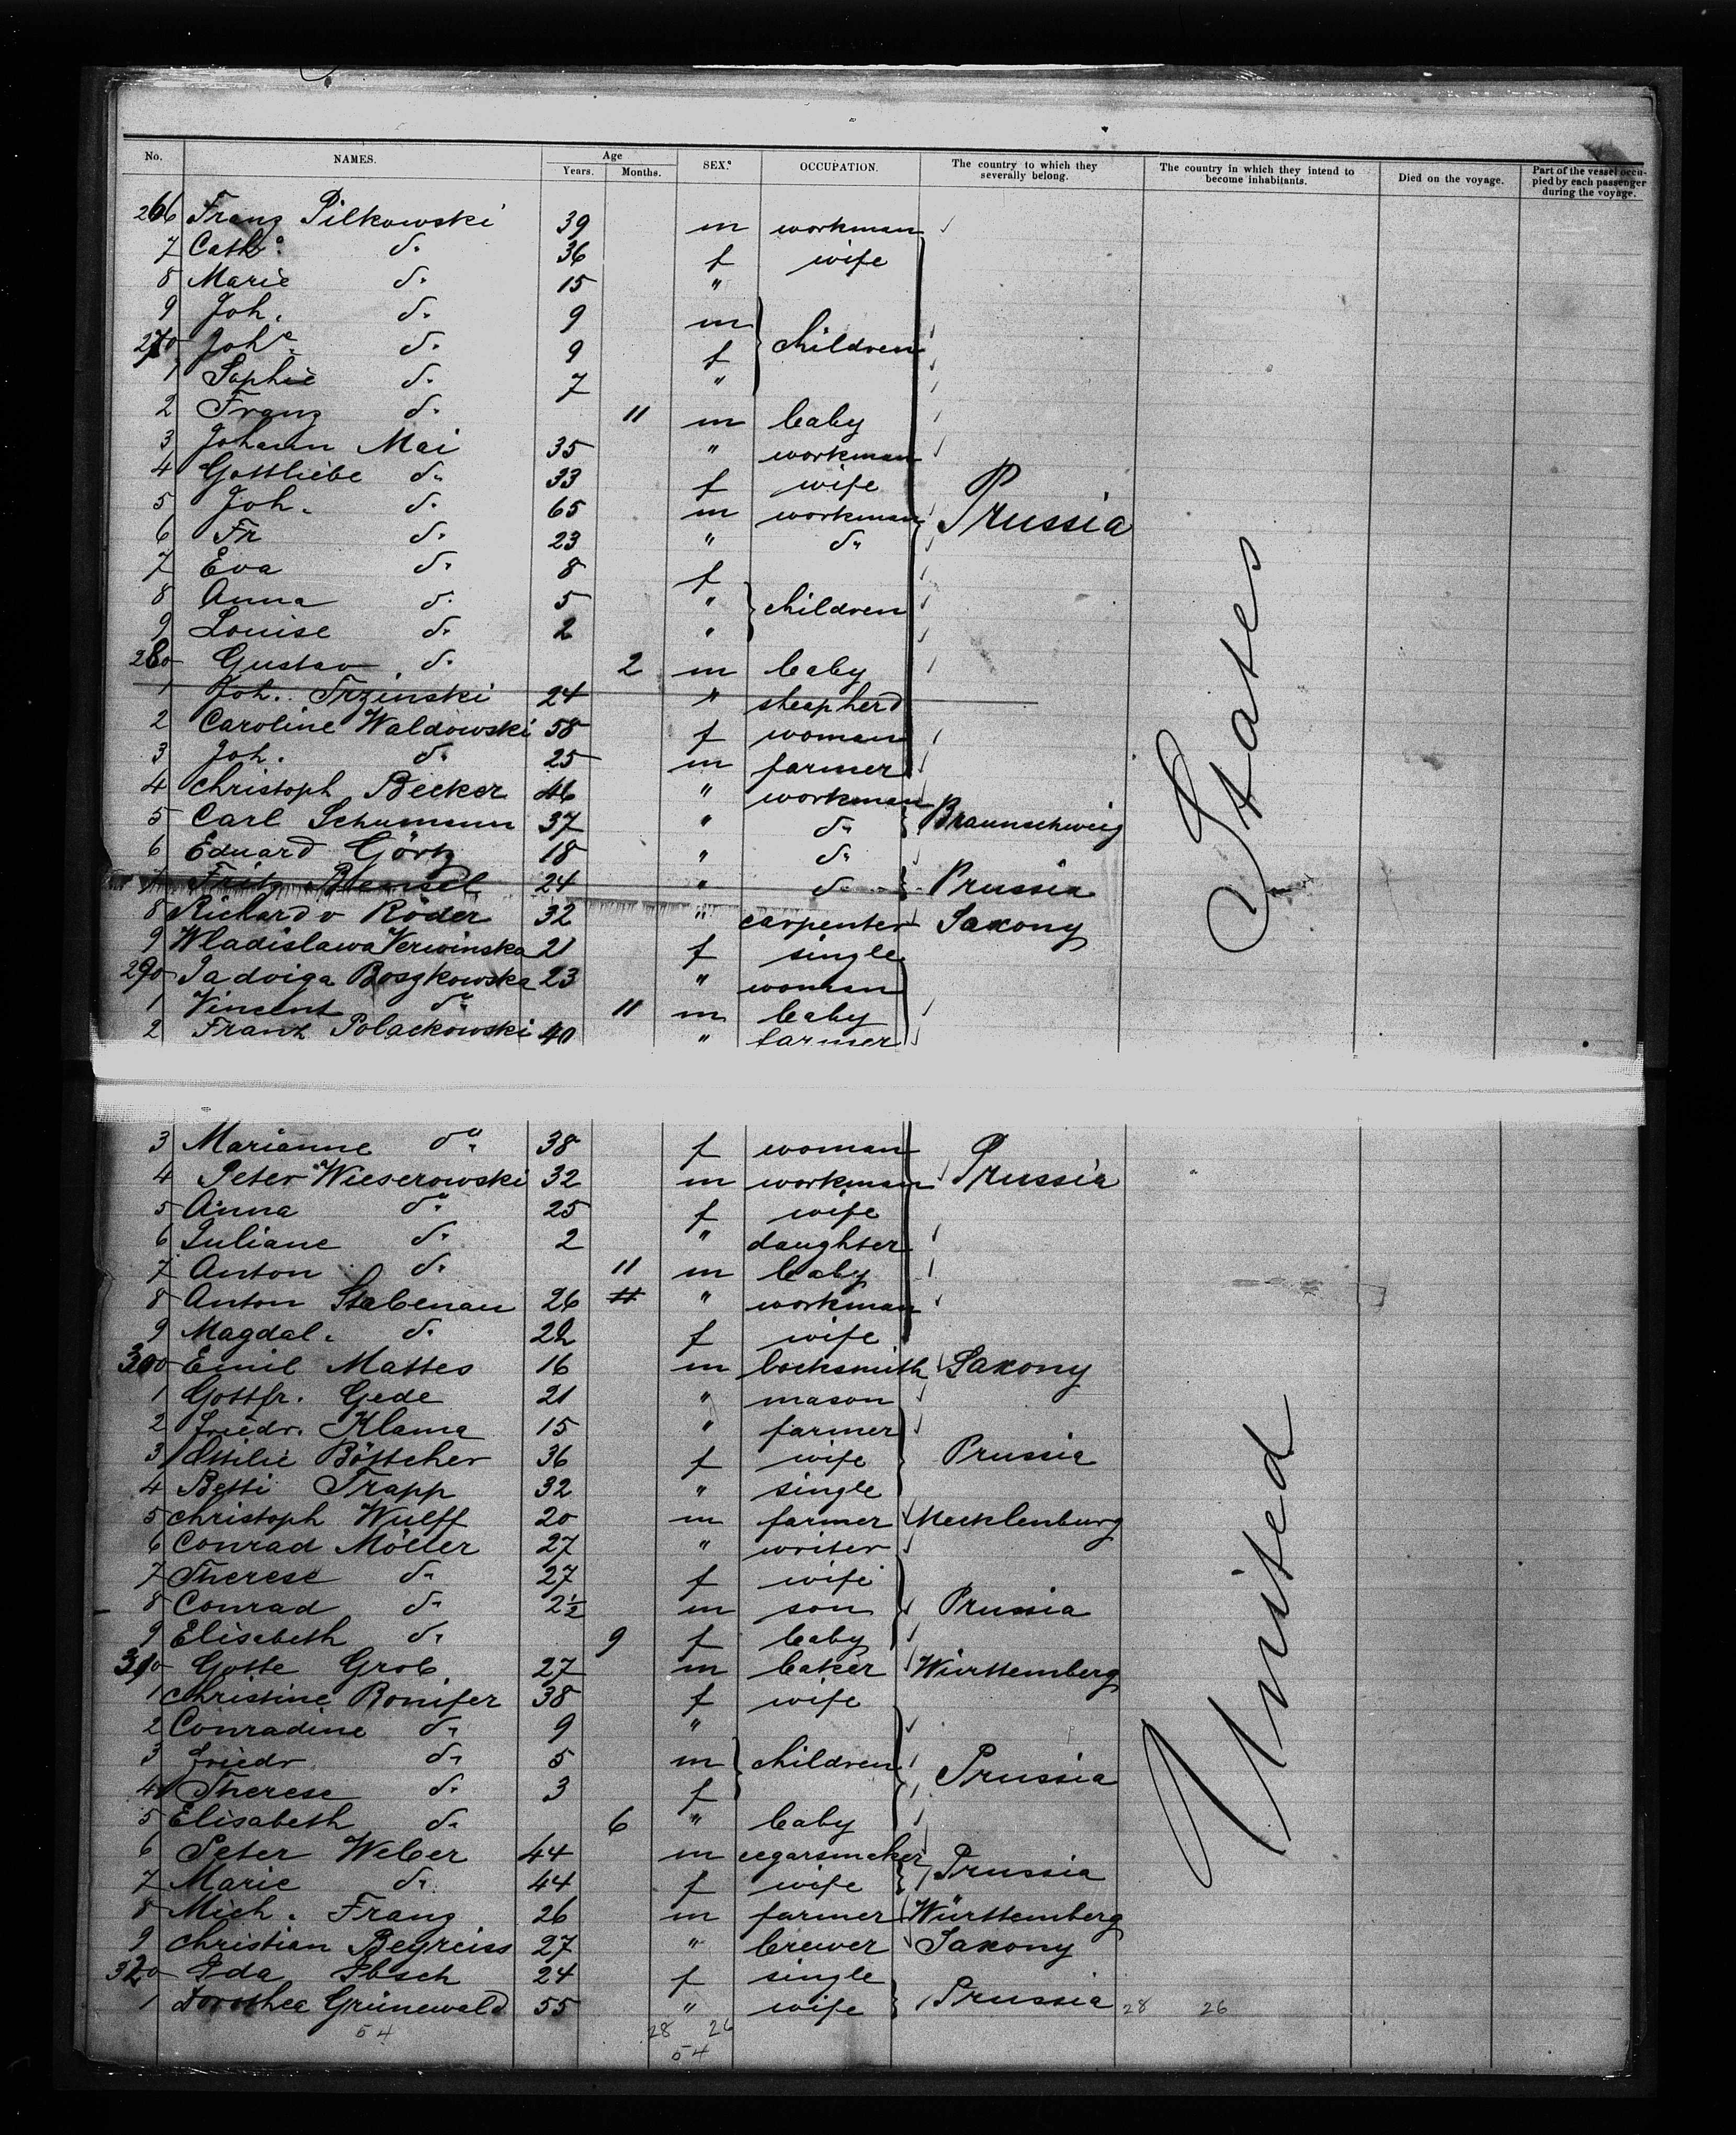 No. NAMES. Age Years. Months. SEX. OCCUPATION. The country to which they severally belong. The country in which they intend to become inhabitants. Died on the voyage. Part of the vessel occupied by each passenger during the voyage.
266 Franz Pilkowski 39 m workman
7 Cath. do. 36 f wife
8 Marie do. 15 "
9 Joh. do. 9 m
270 Johe. do. 9 f children
1 Sophie do. 7 "
2 Franz do. 11 m baby
3 Johann Mai 35 " workman
4 Gottliebe do. 33 f wife
5 Joh. do. 65 m workman Prussia
6 Fr do. 23 " do.
7 Eva do. 8 f
8 Anna do. 5 " children
9 Louise do. 2 "
280 Gustav do. 2 m baby
1 Joh. Trzinski 24 " sheapherd
2 Caroline Waldowski 58 f woman
3 Joh. do. 25 m farmer
4 Christoph Becker 46 " workman
5 Carl Schumann 37 " do. Braunschweig
6 Eduard Görtz 18 " do.
7 Fritz 24 " do. Prussia
8 Richard v Röder 32 " carpenter Saxony
9 Wladislawa Verwinska 21 f single
290 Jadviga Boszkowska 23 " woman
1 Vincent do. 11 m baby
2 Franz Polackowski 40 " farmer
3 Marianne do. 38 f woman
4 Peter Wieserowski 32 m workman Prussia
5 Anna do. 25 f wife
6 Juliane do. 2 " daughter
7 Anton do. 11 m baby
8 Anton Stabenau 26 11 " workman
9 Magdal. do. 22 f wife
300 Emil Mattes 16 m locksmith Saxony
1 Gottfr. Gede 21 " mason
2 Friedr. Klama 15 " farmer
3 Ottilie Böttcher 36 f wife Prussia
4 Betti Trapp 32 " single
5 Christoph Wulff 20 m farmer Mecklenburg
6 Conrad Möller 27 " writer
7 Therese do. 27 f wife
8 Conrad do. 2½ m son Prussia
9 Elisabeth do. 9 f baby
310 Gotte Grob 27 m baker Württemberg
1 Christine Bonifer 38 f wife
2 Conradine do. 9 "
3 Friedr. do. 5 m children Prussia
4 Therese do. 3 f
5 Elisabeth do. 6 " baby
6 Peter Weber 44 m cegarsmaker
7 Marie do. 44 f wife Prussia
8 Mich. Franz 26 m farmer Württemberg
9 Christian Beyreiss 27 " brewer Saxony
320 Ida Ibsch 24 f single
1 Dorothea Grünewald 55 " wife Prussia 28 26
54 28 26
54
United States